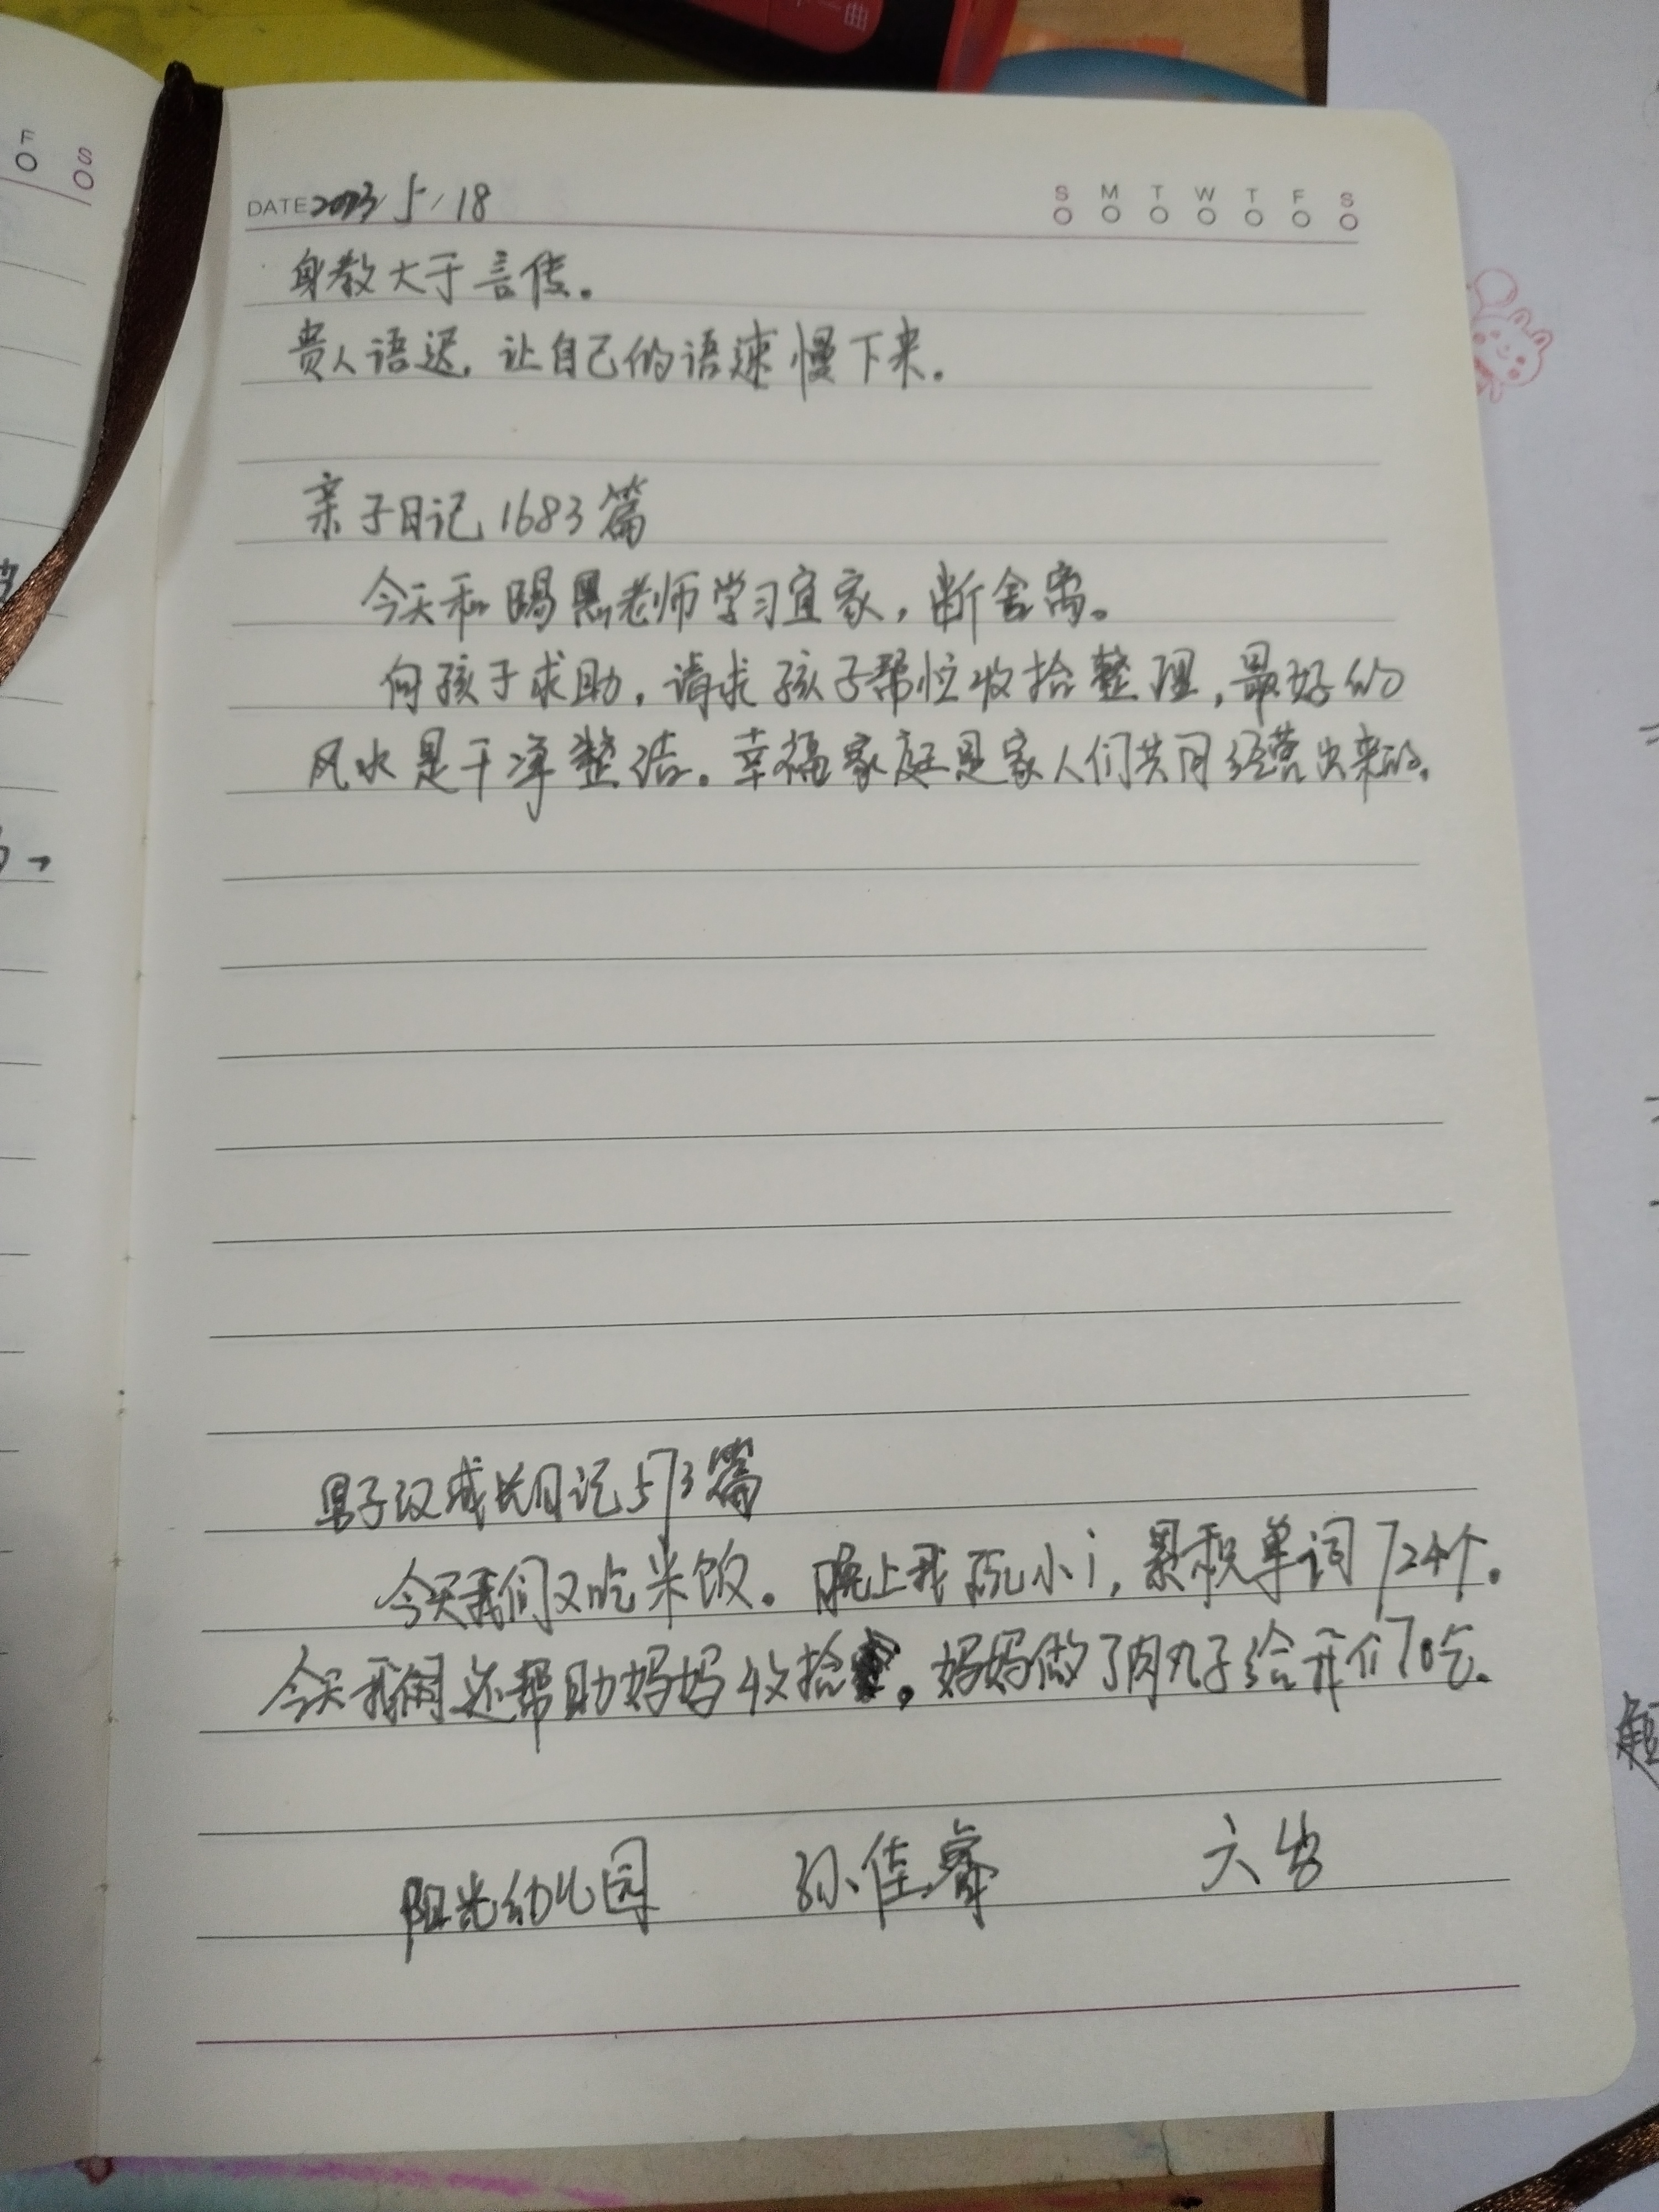 F S
DATE 2023/5/18
S M T W T F S
身教大于言传。
贵人语迟,让自己的语速慢下来。
亲子日记1683篇
今天和 老师学习宜家,断舍离。
向孩子求助,请求孩子帮忙收拾整理,最好的
风水是干净整洁。幸福家庭是家人们共同经营出来的。
男子汉成长日记573篇
今天我们又吃米饭。晚上我玩小i,累积单词724个。
今天我们还帮助妈妈收拾 。妈妈做了肉丸子给我们 吃。
阳光幼儿园 孙佳睿 六岁